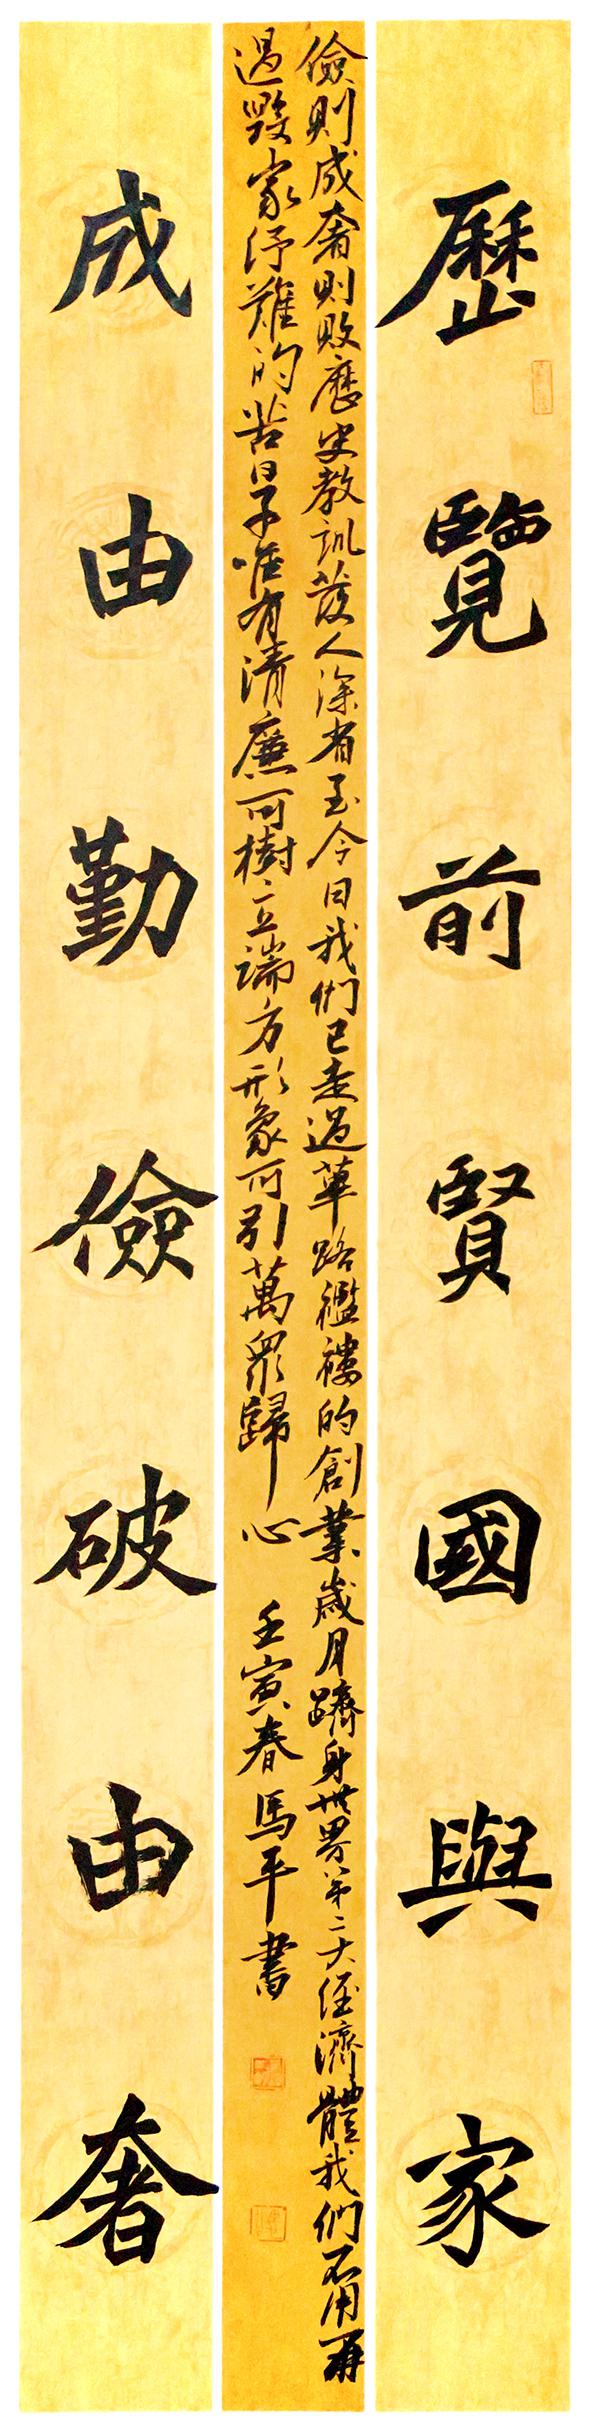 歷覽前賢國與家
儉則成奢則敗歷史教訓發人深省至今日我們已走過蓽路襤褸的創業歲月躋身世界第二大經濟體我們不用再
過毀家紓難的苦日子唯有清廉可樹立端方形象可引萬眾歸心 壬寅春馬平書
成由勤儉破由奢